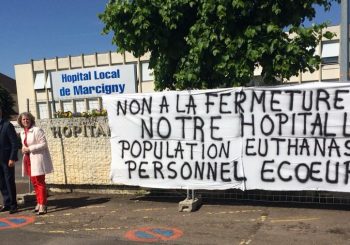 Hopital Local
de Marcigny
HOPITAL
NON A LA FERMETURE
NOTRE HOPITAL
POPULATION EUTHANAS
PERSONNEL ECOEUR